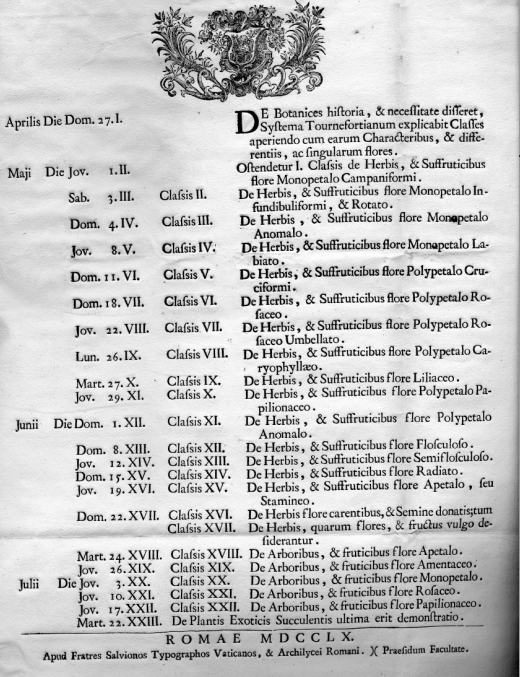 Aprilis Die Dom. 27. I. DE Botanices hiſtoria, & neceſſitate diſſeret,
Syſtema Tournefortianum explicabit Claſſes
aperiendo cum earum Characteribus, & diffe-
rentiis, ac ſingularum flores.
Maji Die Jov. 1. II. Oſtendetur I. Claſſis de Herbis, & Suffruticibus
flore Monopetalo Campaniformi.
Sab. 3. III. Claſsis II. De Herbis, & Suffruticibus flore Monopetalo In-
fundibuliformi, & Rotato.
Dom. 4. IV. Claſsis III. De Herbis, & Suffruticibus flore Monopetalo
Anomalo.
Jov. 8. V. Claſsis IV. De Herbis, & Suffruticibus flore Monopetalo La-
biato.
Dom. 11. VI. Claſsis V. De Herbis, & Suffruticibus flore Polypetalo Cru-
ciformi.
Dom. 18. VII. Claſsis VI. De Herbis, & Suffruticibus flore Polypetalo Ro-
ſaceo.
Jov. 22. VIII. Claſsis VII. De Herbis, & Suffruticibus flore Polypetalo Ro-
ſaceo Umbellato.
Lun. 26. IX. Claſsis VIII. De Herbis, & Suffruticibus flore Polypetalo Ca-
ryophyllæo.
Mart. 27. X. Claſsis IX. De Herbis, & Suffruticibus flore Liliaceo.
Jov. 29. XI. Claſsis X. De Herbis, & Suffruticibus flore Polypetalo Pa-
pilionaceo.
Junii Die Dom. 1. XII. Claſsis XI. De Herbis, & Suffruticibus flore Polypetalo
Anomalo.
Dom. 8. XIII. Claſsis XII. De Herbis, & Suffruticibus flore Floſculoſo.
Jov. 12. XIV. Claſsis XIII. De Herbis, & Suffruticibus flore Semifloſculoſo.
Dom. 15. XV. Claſsis XIV. De Herbis, & Suffruticibus flore Radiato.
Jov. 19. XVI. Claſsis XV. De Herbis, & Suffruticibus flore Apetalo, ſeu
Stamineo.
Dom. 22. XVII. Claſsis XVI. De Herbis flore carentibus, & Semine donatis; tum
Claſsis XVII. De Herbis, quarum flores, & fructus vulgo de-
ſiderantur.
Mart. 24. XVIII. Claſsis XVIII. De Arboribus, & fruticibus flore Apetalo.
Jov. 26. XIX. Claſsis XIX. De Arboribus, & fruticibus flore Amentaceo.
Julii Die Jov. 3. XX. Claſsis XX. De Arboribus, & fruticibus flore Monopetalo.
Jov. 10. XXI. Claſsis XXI. De Arboribus, & fruticibus flore Roſaceo.
Jov. 17. XXII. Claſsis XXII. De Arboribus, & fruticibus flore Papilionaceo.
Mart. 22. XXIII. De Plantis Exoticis Succulentis ultima erit demonſtratio.
ROMAE MDCCLX.
Apud Fratres Salvionos Typographos Vaticanos, & Archilycei Romani. )( Praeſidum Facultate.